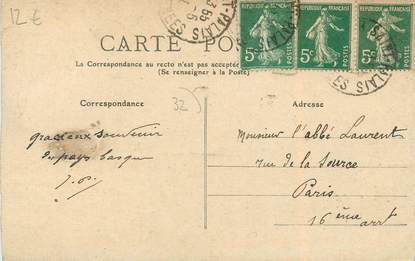 12 €
CARTE POS
RÉPUBLIQUE FRANÇAISE
5c POSTES
RÉPUBLIQUE FRANÇAISE
5c POSTES
RÉPUBLIQUE FRANÇAISE
5c POSTES
PALAIS
La Correspondance au recto n'est pas acceptée
(Se renseigner à la Poste)
Correspondance
32
Adresse
gracieux souvenir
du pays basque
Monsieur l'abbé Laurent
rue de la Source
Paris
16ème arrt